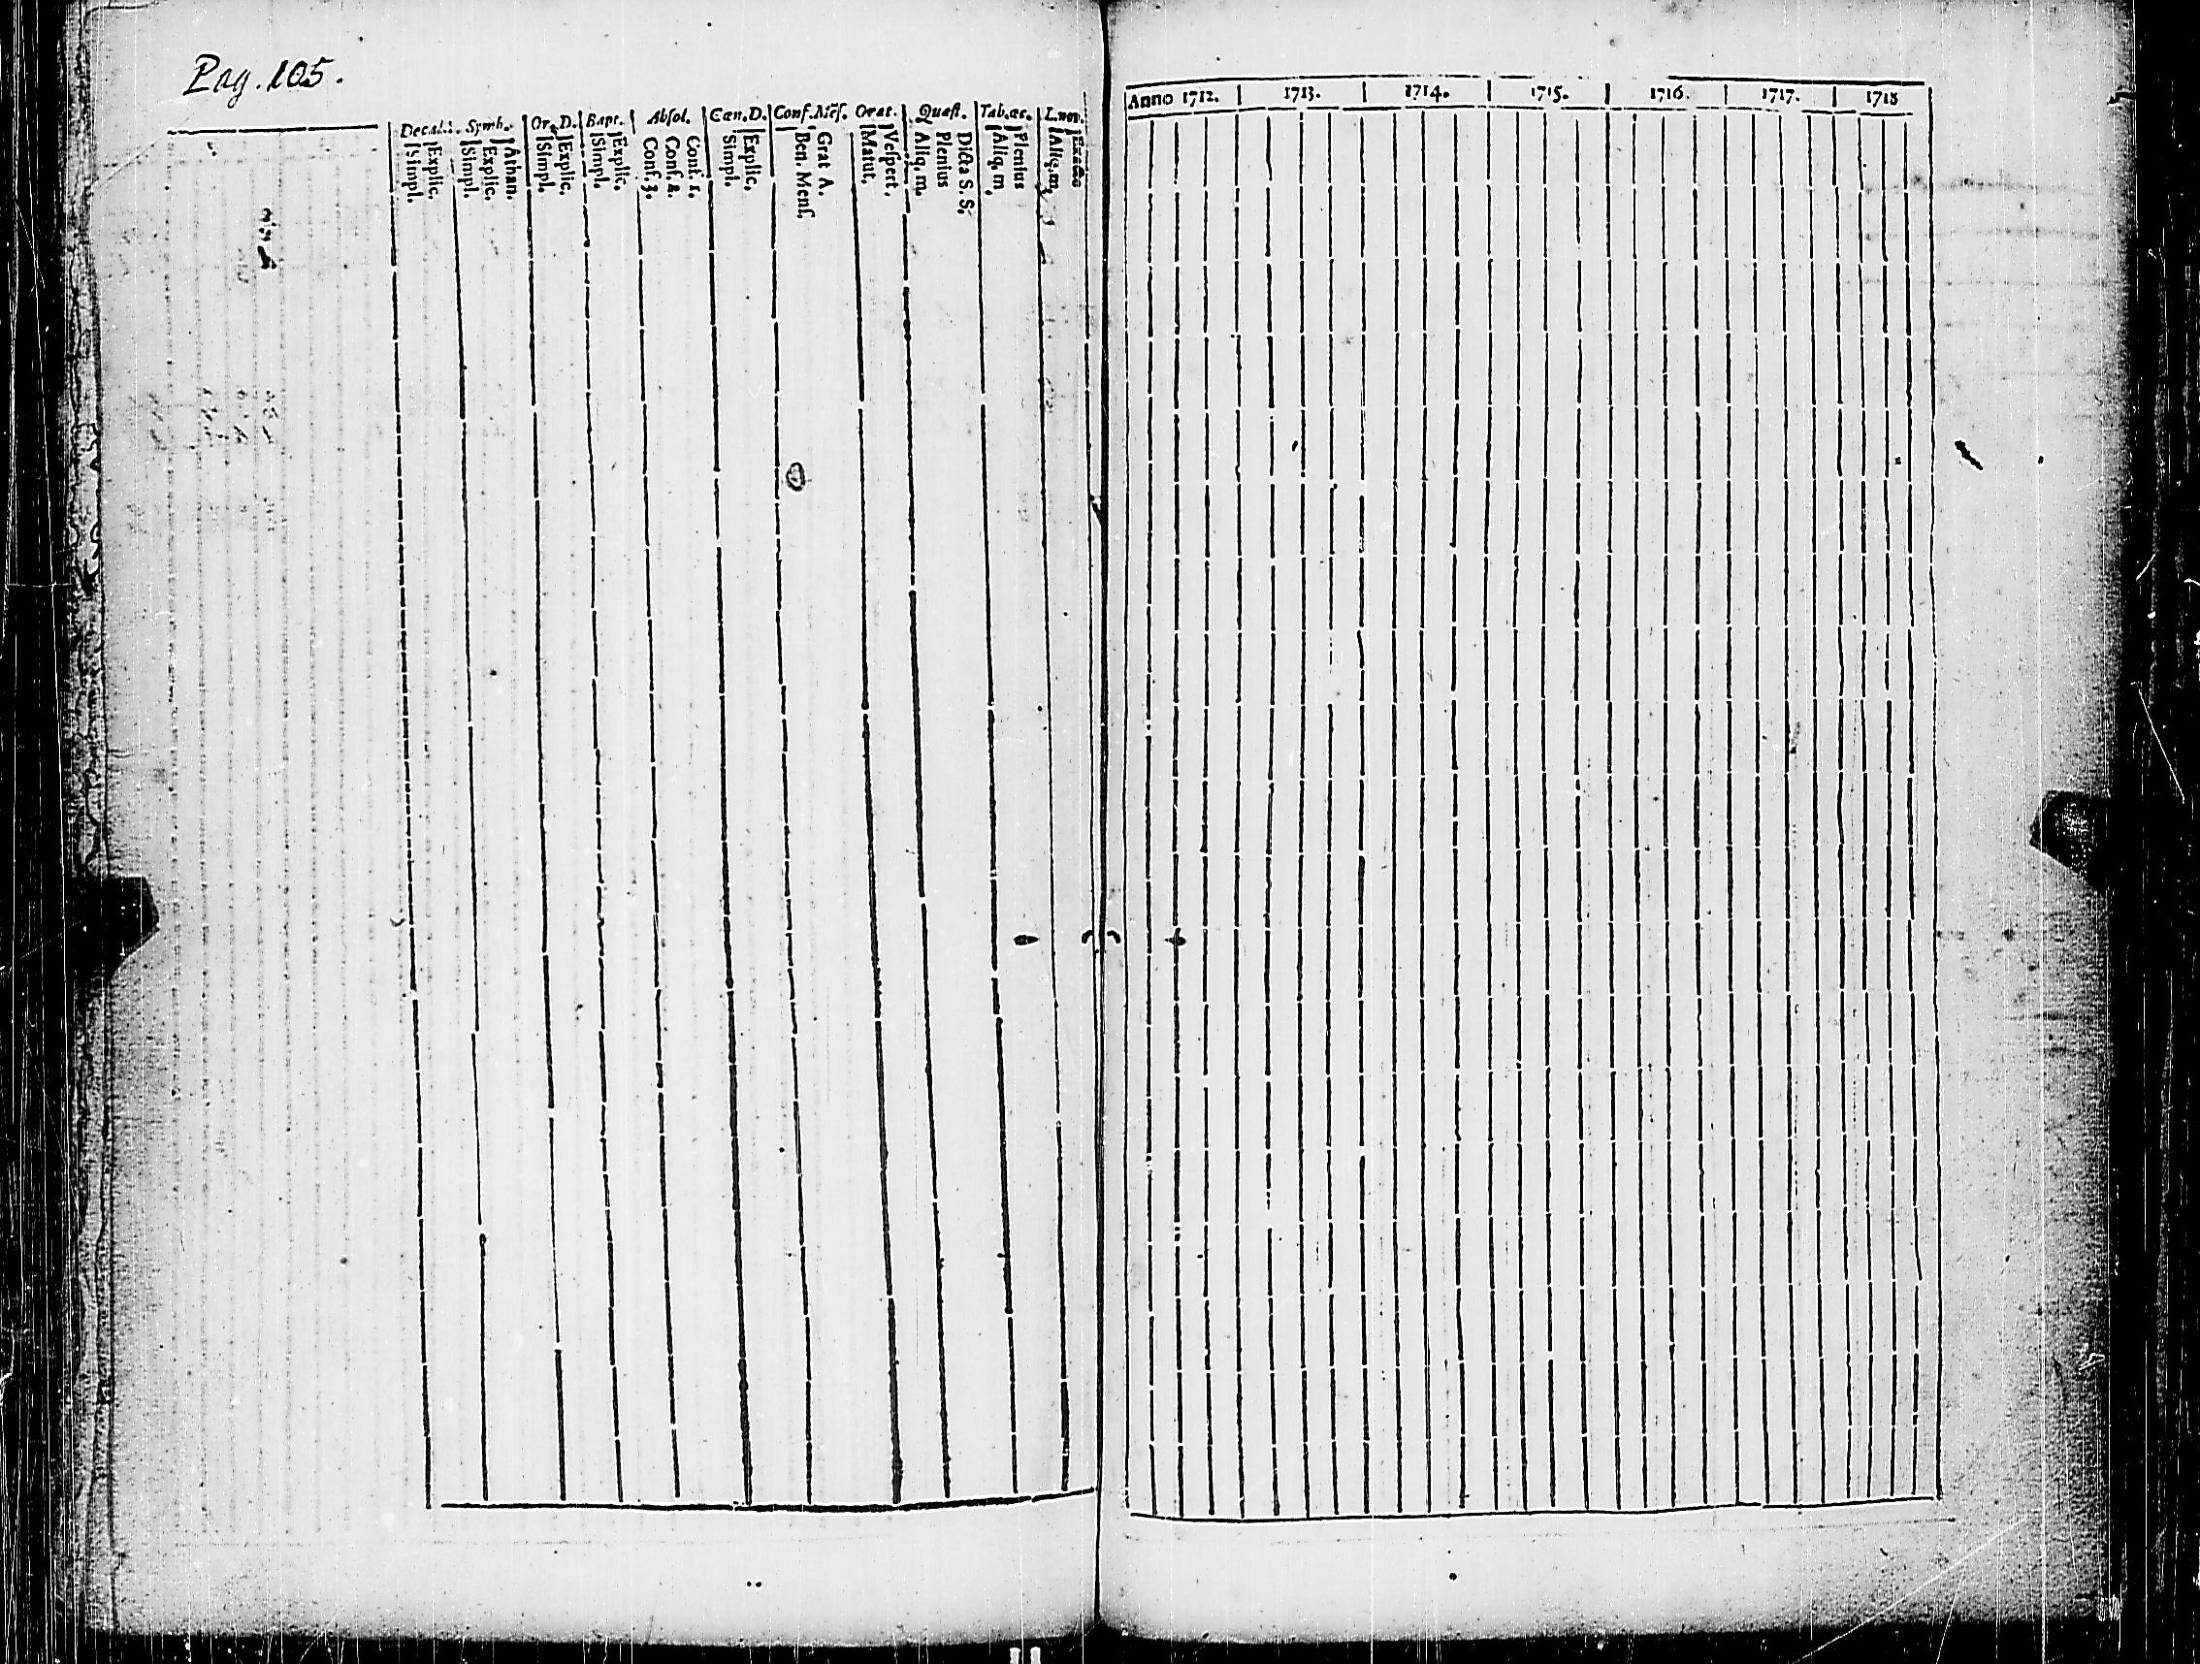 Pag. 105.
Decal. Symb. Or. D. Bapt. Absol. Cœn. D. Conf. Mẽs. Orat. Quæst. Tab. œc. L. nov.
Simpl. Explic. Simpl. Explic. Athan. Simpl. Explic. Simpl. Explic. Conf. 3. Conf. 2. Conf. 1. Simpl. Explic. Ben. Menſ. Grat A. Matut. Veſpert. Aliq. m. Plenius Dicta S. S. Aliq. m. Plenius Aliq. m.
Anno 1712. 1713. 1714. 1715. 1716. 1717. 1718